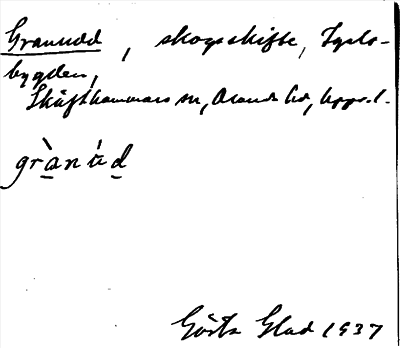 Granudd, skogsskifte, Tysls-
bygden,
Skäfthammars sn, Olands hd, Upps. l.
grànúd
Gösta Glad 1937